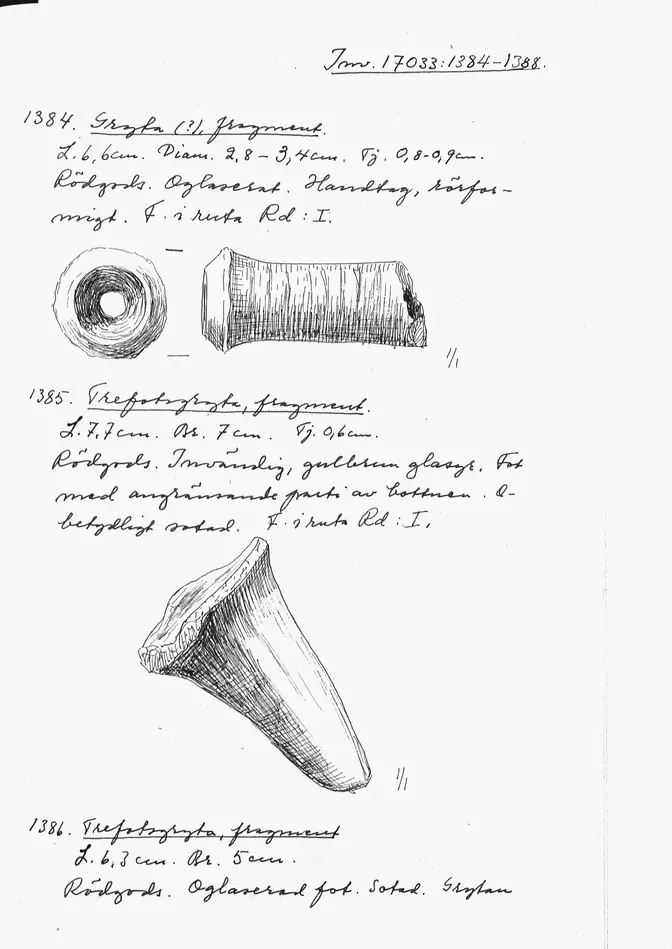 Inv. 17033:1384-1388.
1384. Gryta (?), fragment.
L. 6,6 cm. Diam. 2,8 - 3,4 cm. Tj. 0,8-0,9 cm.
Rödgods. Oglaserat. Handtag, rörfor-
migt. F. i ruta Rd : I.
1/1
1385. Trefotsgryta, fragment.
L. 7,7 cm. Br. 7 cm. Tj. 0,6 cm.
Rödgods. Invändig, gulbrun glasyr. Fot
med angränsande parti av bottnen. O-
betydligt sotad. F. i ruta Rd : I.
1/1
1386. Trefotsgryta, fragment
L. 6,3 cm. Br. 5 cm.
Rödgods. Oglaserad fot. Sotad. Grytan